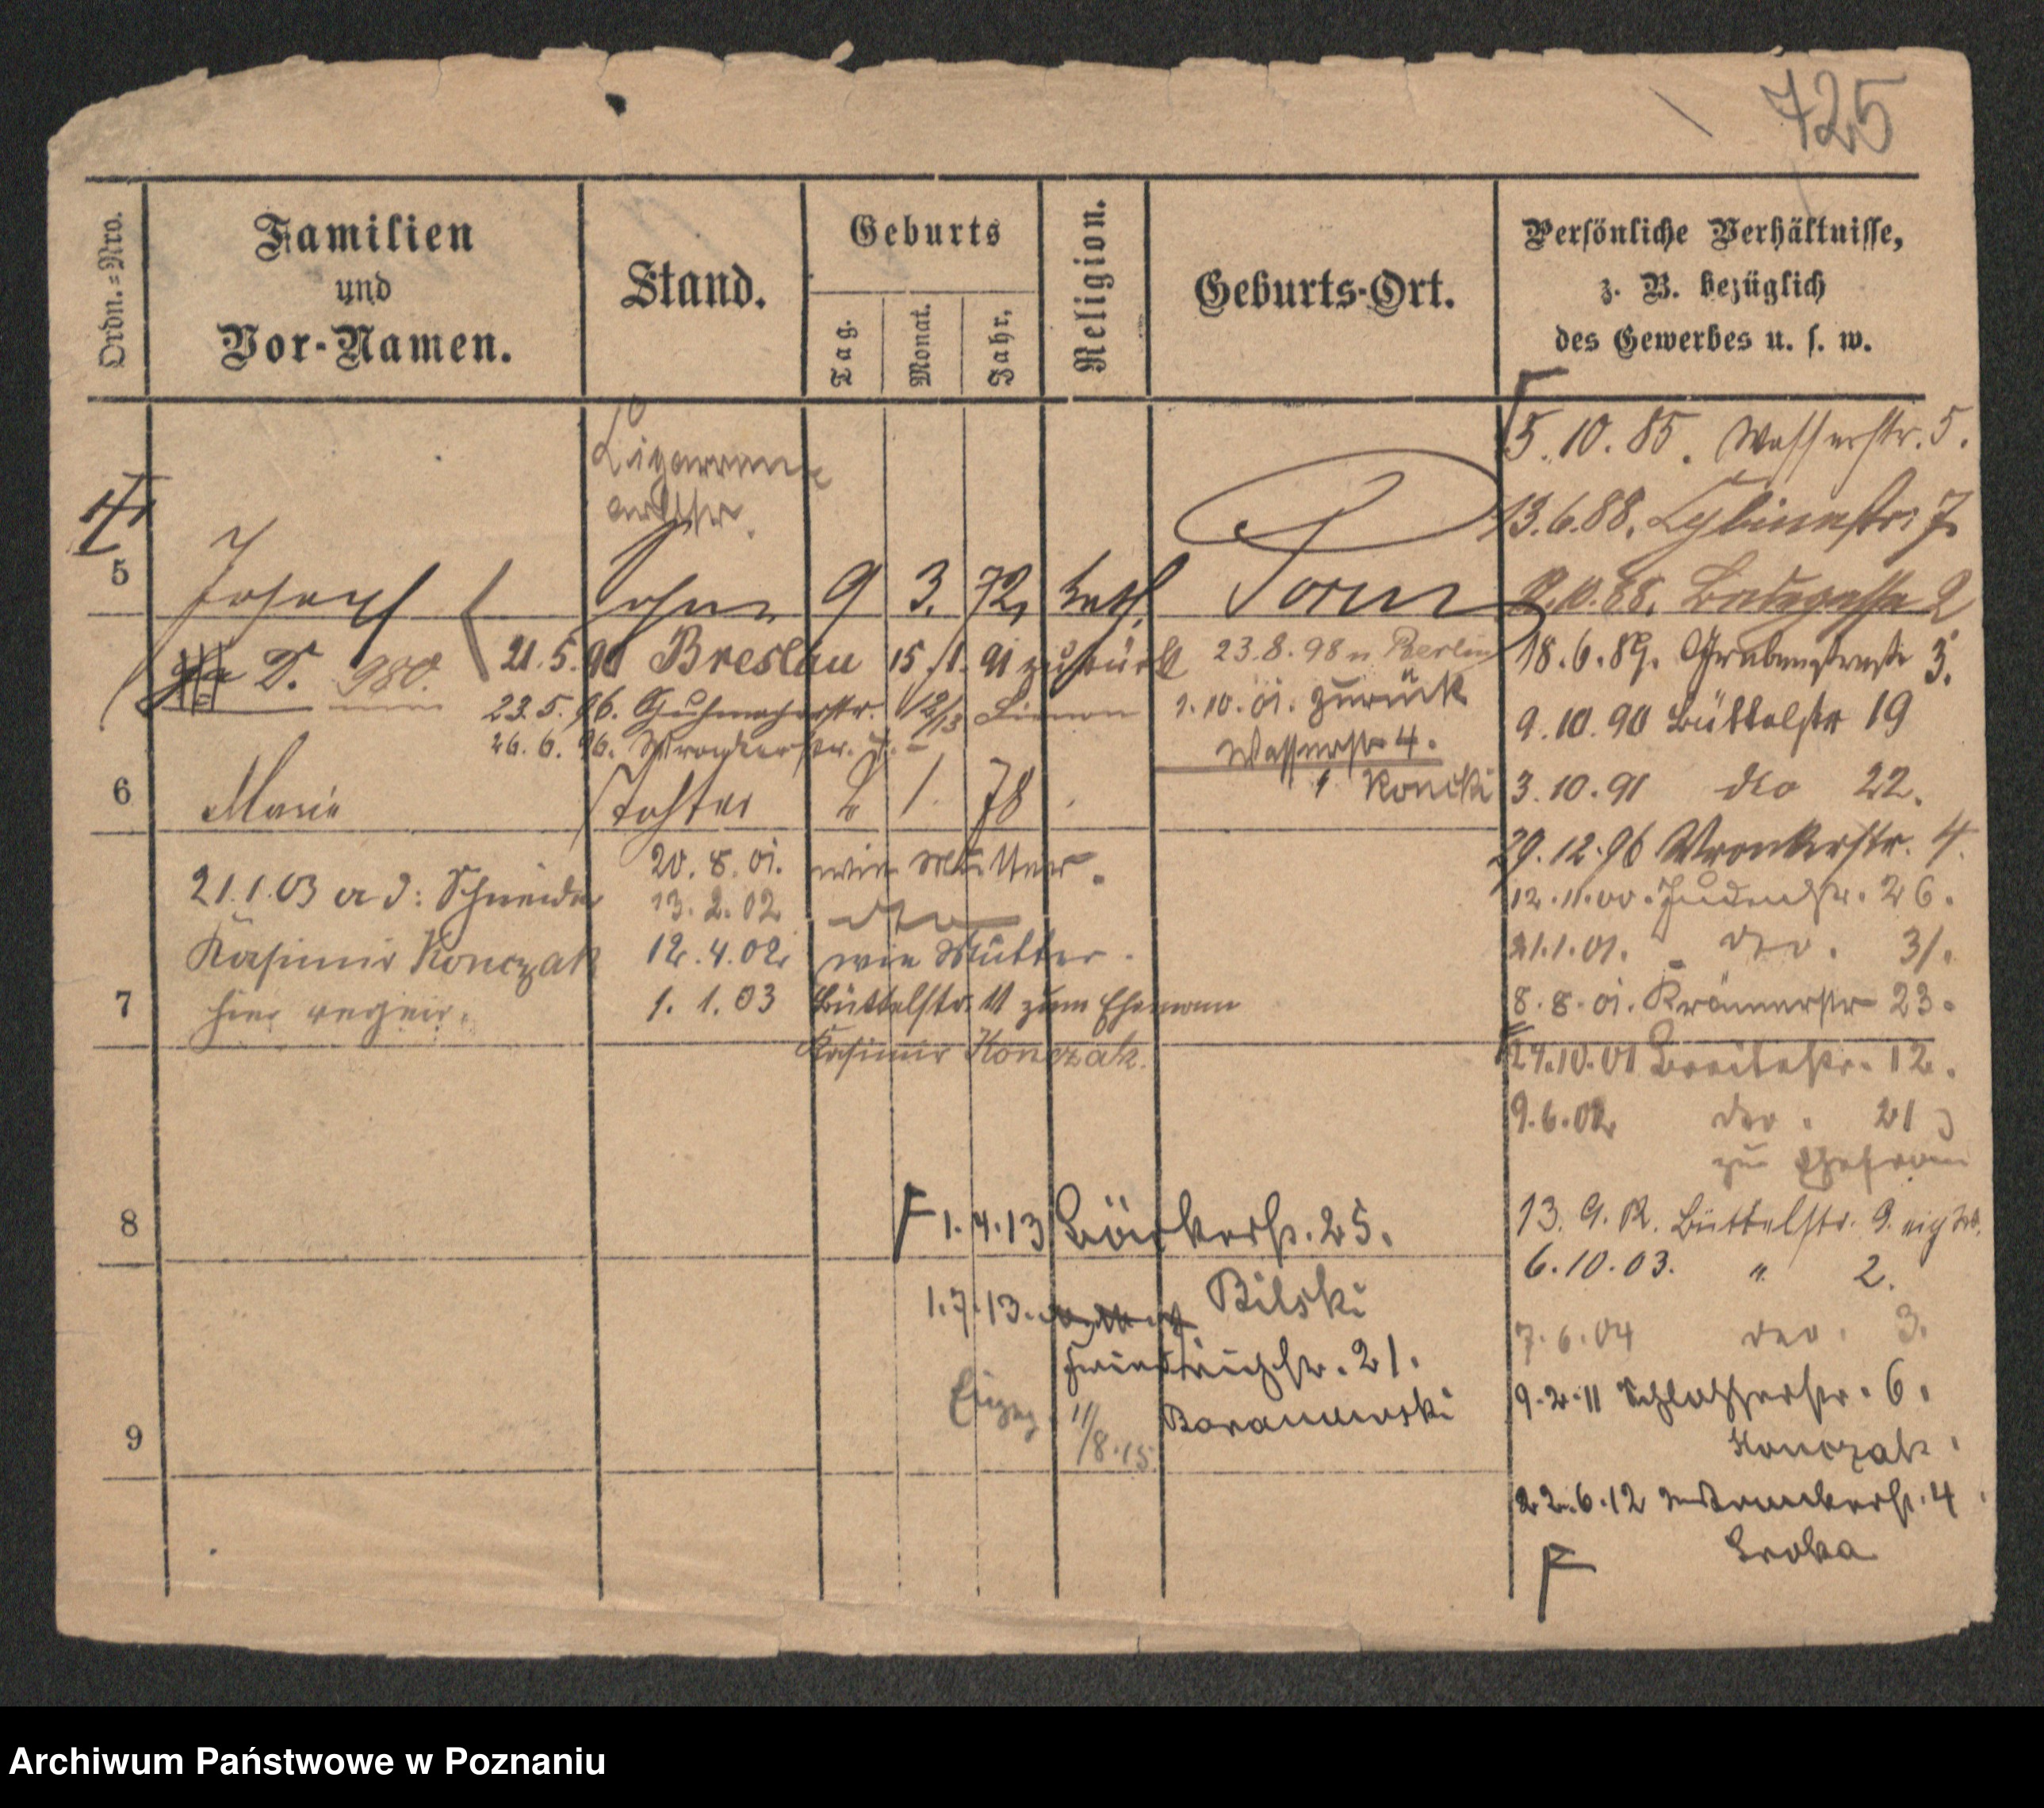 725
Ordn.=Nro.
Familien
und
Vor-Namen.
Stand.
Geburts
Tag.
Monat.
Jahr.
Religion.
Geburts-Ort.
Persönliche Verhältnisse,
z. B. bezüglich
des Gewerbes u. s. w.
Cigarren
arbtr.
5
Joseph
Sohn
9 3. 72 kath.
Posen
D. 980.
21. 5. 90 Breslau 15. /1. 91 zurück
23. 5. 96.
26. 6. 96. Wronkerstr. 4.
23. 8. 98 n Berlin
1. 10. 01. zurück
Wasserstr. 4.
Koncki
6
Marie
Tochter
6 1. 78
21. 1. 03 Schneider
Kasimir Konczak
hier
7
20. 8. 01. wie Mutter.
13. 2. 02 dto
12. 4. 02 wie Mutter.
1. 1. 03 Büttelstr. 11 zum Ehemann
Kasimir Konczak.
8
1. 4. 13 25.
1. 7. 13. Bilski
21.
Baranowski
11/8. 15.
9
5. 10. 85. Wasserstr. 5.
13. 6. 88. Cybinastr. 7
2. 10. 88. Badegasse 2
18. 6. 89. Grabenstraße 3.
9. 10. 90 Büttelstr 19
3. 10. 91 dto 22.
29. 12. 96 Wronkerstr. 4.
12. 11. 00. Judenstr. 26.
21. 1. 01. dto. 31.
8. 8. 01. Krämerstr 23.
24. 10. 01 Breitestr. 12.
9. 6. 02 dto. 21
zur Ehefrau
13. 9. Büttelstr. 9.
6. 10. 03. " 2.
7. 6. 04 dto. 3.
9. 2. 11 Schlosserstr. 6.
Konczak.
22. 6. 12 Wronkerstr. 4
Archiwum Państwowe w Poznaniu